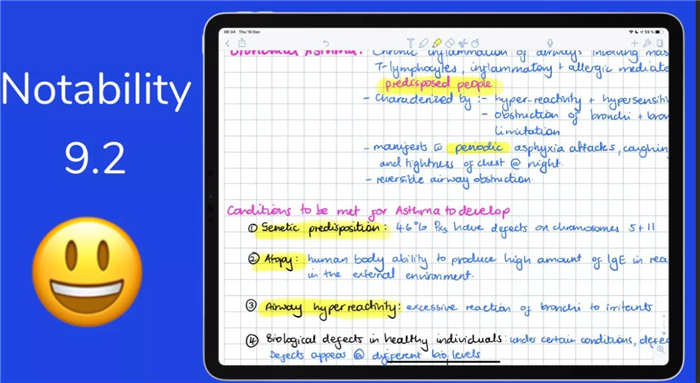 Notability
9.2
08:34 Thu 19 Dec
59 %
Bronchial Asthma: Chronic inflammation of airways involving mas
T-lymphocytes, inflammatory + allergic mediato
predisposed people
- characterized by :- hyper-reactivity + hypersensiti
- obstruction of bronchi + bron
limitation
- manifests periodic asphyxia attacks, coughin
and tightness of chest @ night.
- reversible airway obstruction
Conditions to be met for Asthma to develop
① Genetic predisposition: 46% Pxs have defects on chromosomes 5+11
② Atopy: human body ability to produce high amount of IgE in rea
in the external environment.
③ Airway hyperreactivity: excessive reaction of bronchi to irritants
④ Biological defects in healthy individuals: under certain conditions, defec
Defects appear @ different bio levels